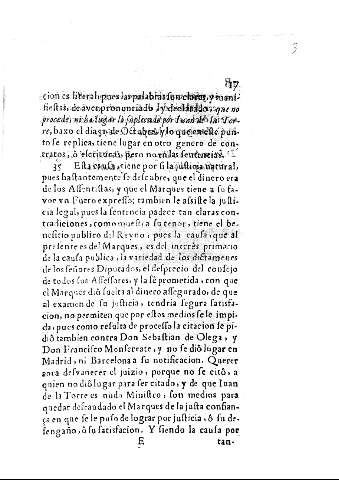 87
cion es literal, pues las palabras son claras, y mani-
fiestas, de aver pronunciado, y declarado, que no
procede, ni ha lugar lo suplicado por Juan de la Tor-
re, baxo el dia 19. de Octubre, y lo que en este pun-
to se replica, tiene lugar en otro genero de con-
tratos, ò escrituras, pero no en las sentencias.
35 Esta causa, tiene por si la justicia natural,
pues bastantemente se descubre, que el dinero era
de los Assentistas, y que el Marques tiene a su fa-
vor vn Fuero expresso; tambien le assiste la justi-
cia legal, pues la sentencia padece tan claras con-
tradiciones, como muestra su tenor, tiene el be-
neficio publico del Reyno, pues la causa, que al
presente es del Marques, es del interès primario
de la causa publica, la variedad de los dictamenes
de los señores Diputados, el desprecio del consejo
de todos sus Assessores, y la fè prometida, con que
el Marques diò suelta al dinero assegurado, de que
al examen de su justicia, tendria segura satisfa-
cion, no permiten que por estos medios se le impi-
da, pues como resulta de processo la citacion se pi-
diò tambien contra Don Sebastian de Olega, y
Don Francisco Monserrate, y no se diò lugar en
Madrid, ni Barcelona a su notificacion. Querer
aora desvanecer el juizio, porque no se citò, a
quien no diò lugar para ser citado, y de que Iuan
de la Torre es nudo Ministro, son medios para
quedar defraudado el Marques de la justa confian-
ça en que se le puso de lograr por justicia, ò su de-
sengaño, ò su satisfacion. Y siendo la causa por
E tan-